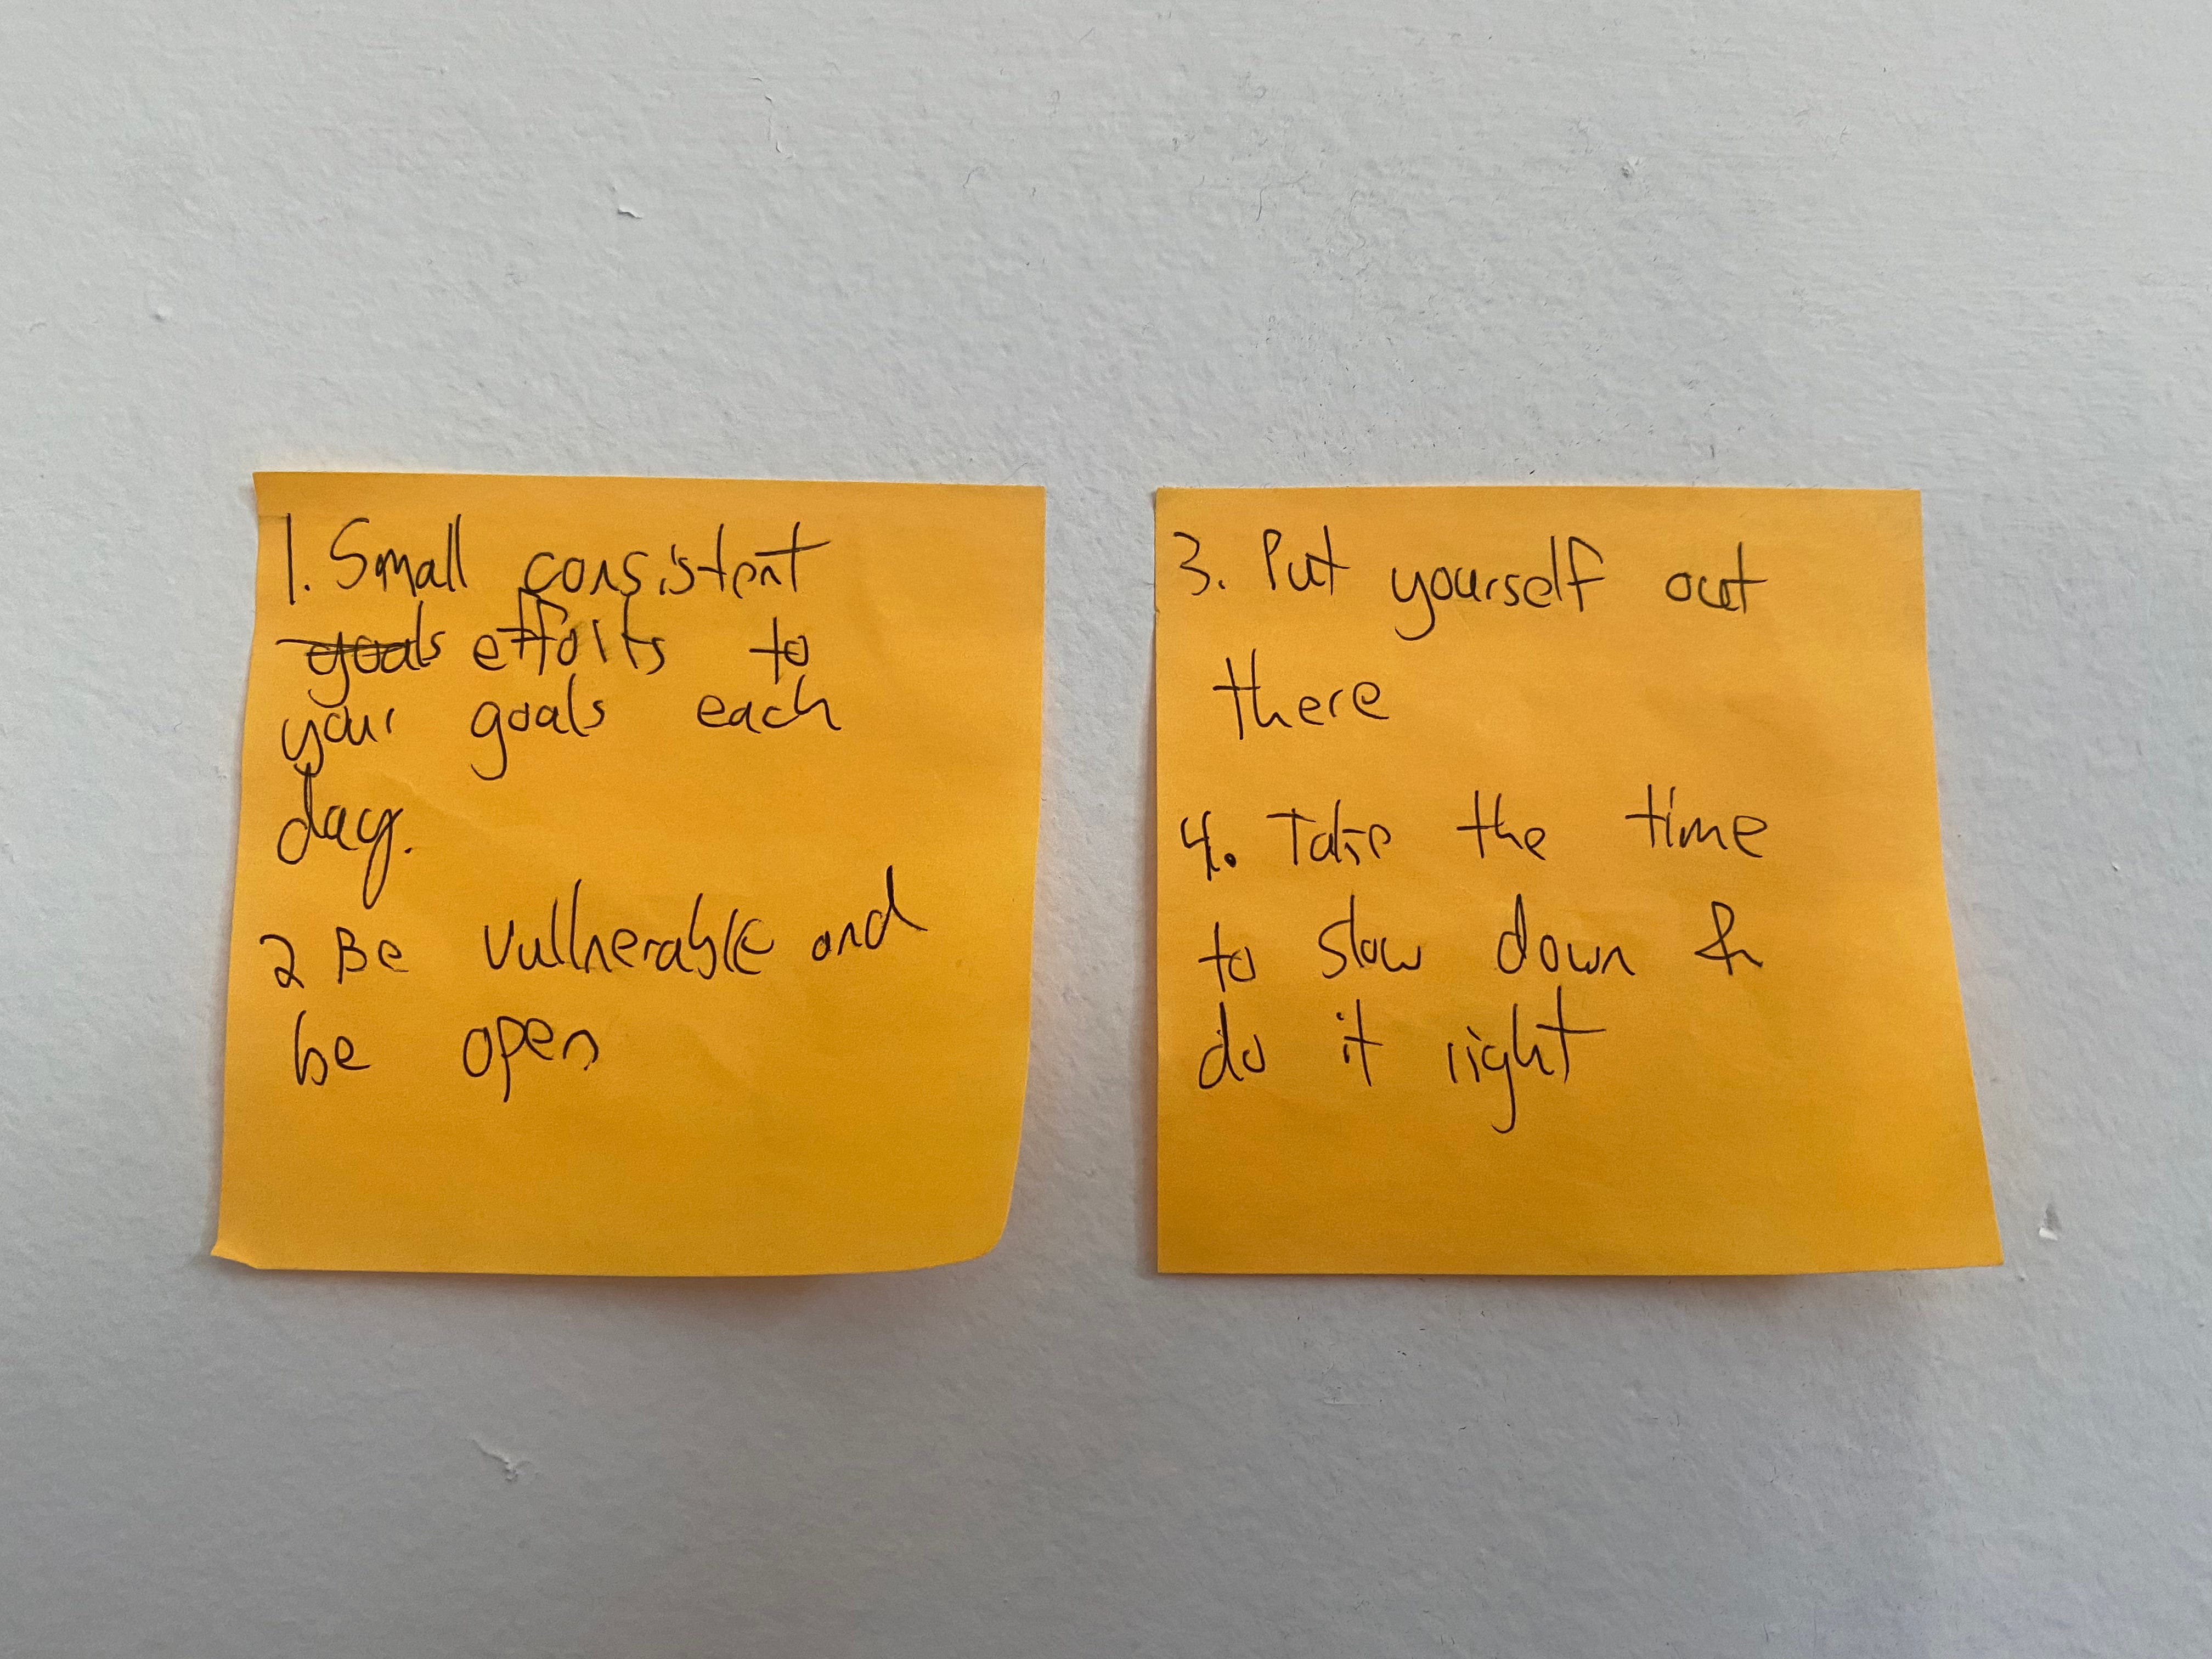 1. Small consistent
goals efforts to
your goals each
day.
2 Be vullnerable and
be open
3. Put yourself out
there
4. Take the time
to slow down &
do it right